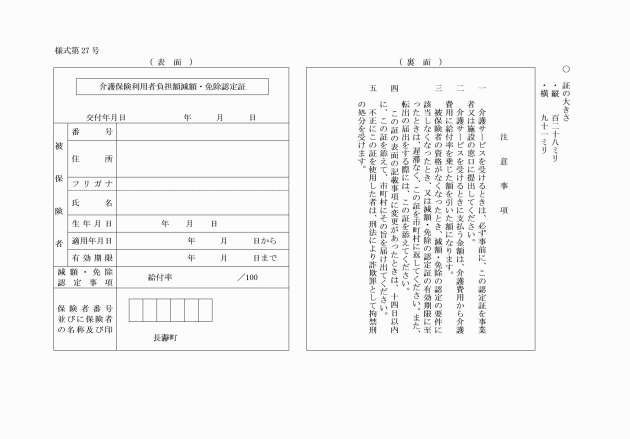 様式第27号
（表　面）
介護保険利用者負担額減額・免除認定証
交付年月日　年　月　日
被保険者
番　号
住　所
フリガナ
氏　名
生年月日　年　月　日
適用年月日　年　月　日から
有効期限　年　月　日まで
減額・免除
認定事項
給付率　／100
保険者番号
並びに保険者
の名称及び印
長壽町
（裏　面）
注　意　事　項
一　介護サービスを受けるときは、必ず事前に、この認定証を事業
者又は施設の窓口に提出してください。
二　介護サービスを受けるときに支払う金額は、介護費用から介護
費用に給付率を乗じた額を引いた額になります。
三　被保険者の資格がなくなったとき、減額・免除の認定の要件に
該当しなくなったとき、又は減額・免除の認定証の有効期限に至
ったときは、遅滞なく、この証を市町村に返してください。また、
転出の届出をする際には、この証を添えてください。
四　この証の表面の記載事項に変更があったときは、十四日以内
に、この証を添えて、市町村にその旨を届け出てください。
五　不正にこの証を使用した者は、刑法により詐欺罪として拘禁刑
の処分を受けます。
○　証の大きさ
・縦　百二十八ミリ
・横　九十一ミリ